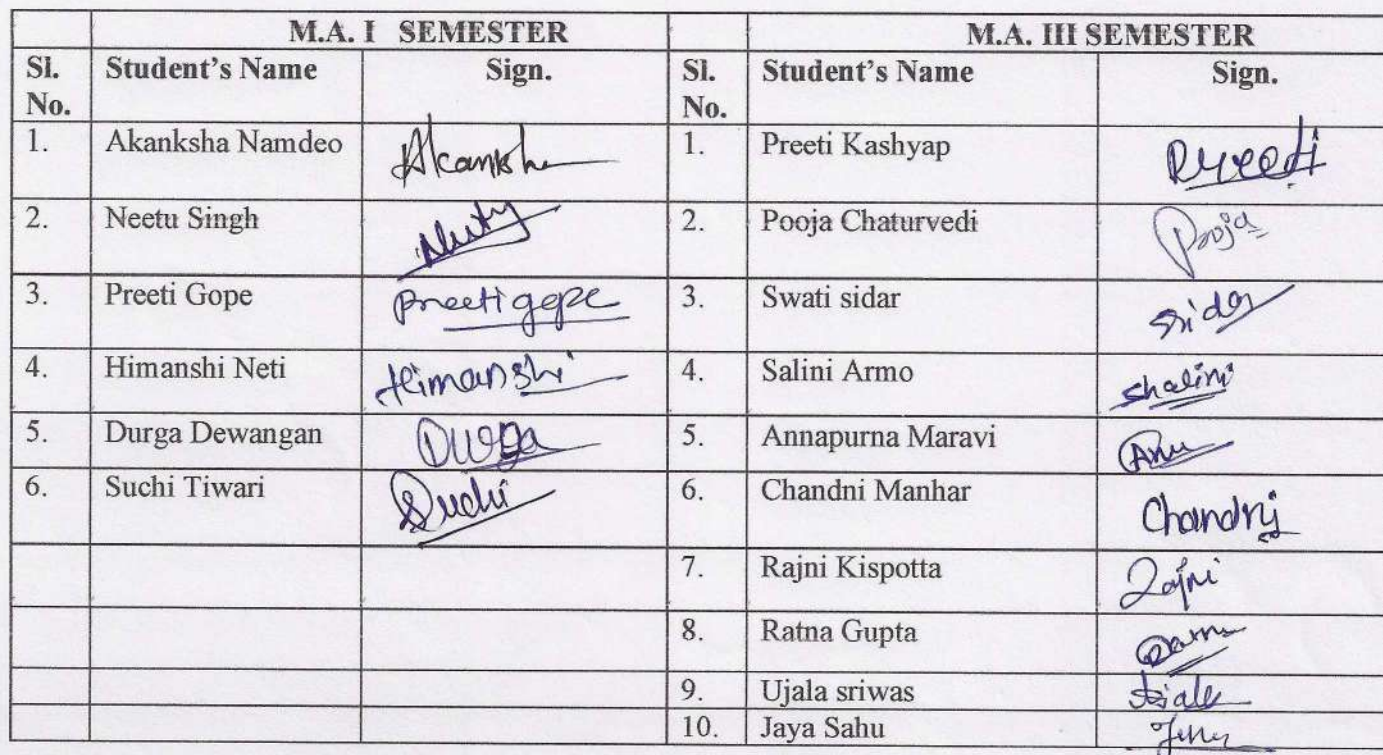 M.A. I SEMESTER M.A. III SEMESTER
Sl. No. Student's Name Sign. Sl. No. Student's Name Sign.
1. Akanksha Namdeo Akanksha 1. Preeti Kashyap Preeti
2. Neetu Singh 2. Pooja Chaturvedi Pooja
3. Preeti Gope Preeti gope 3. Swati sidar Sidar
4. Himanshi Neti Himanshi 4. Salini Armo Shalini
5. Durga Dewangan Durga 5. Annapurna Maravi Anu
6. Suchi Tiwari Suchi 6. Chandni Manhar Chandni
7. Rajni Kispotta Rajni
8. Ratna Gupta
9. Ujala sriwas
10. Jaya Sahu